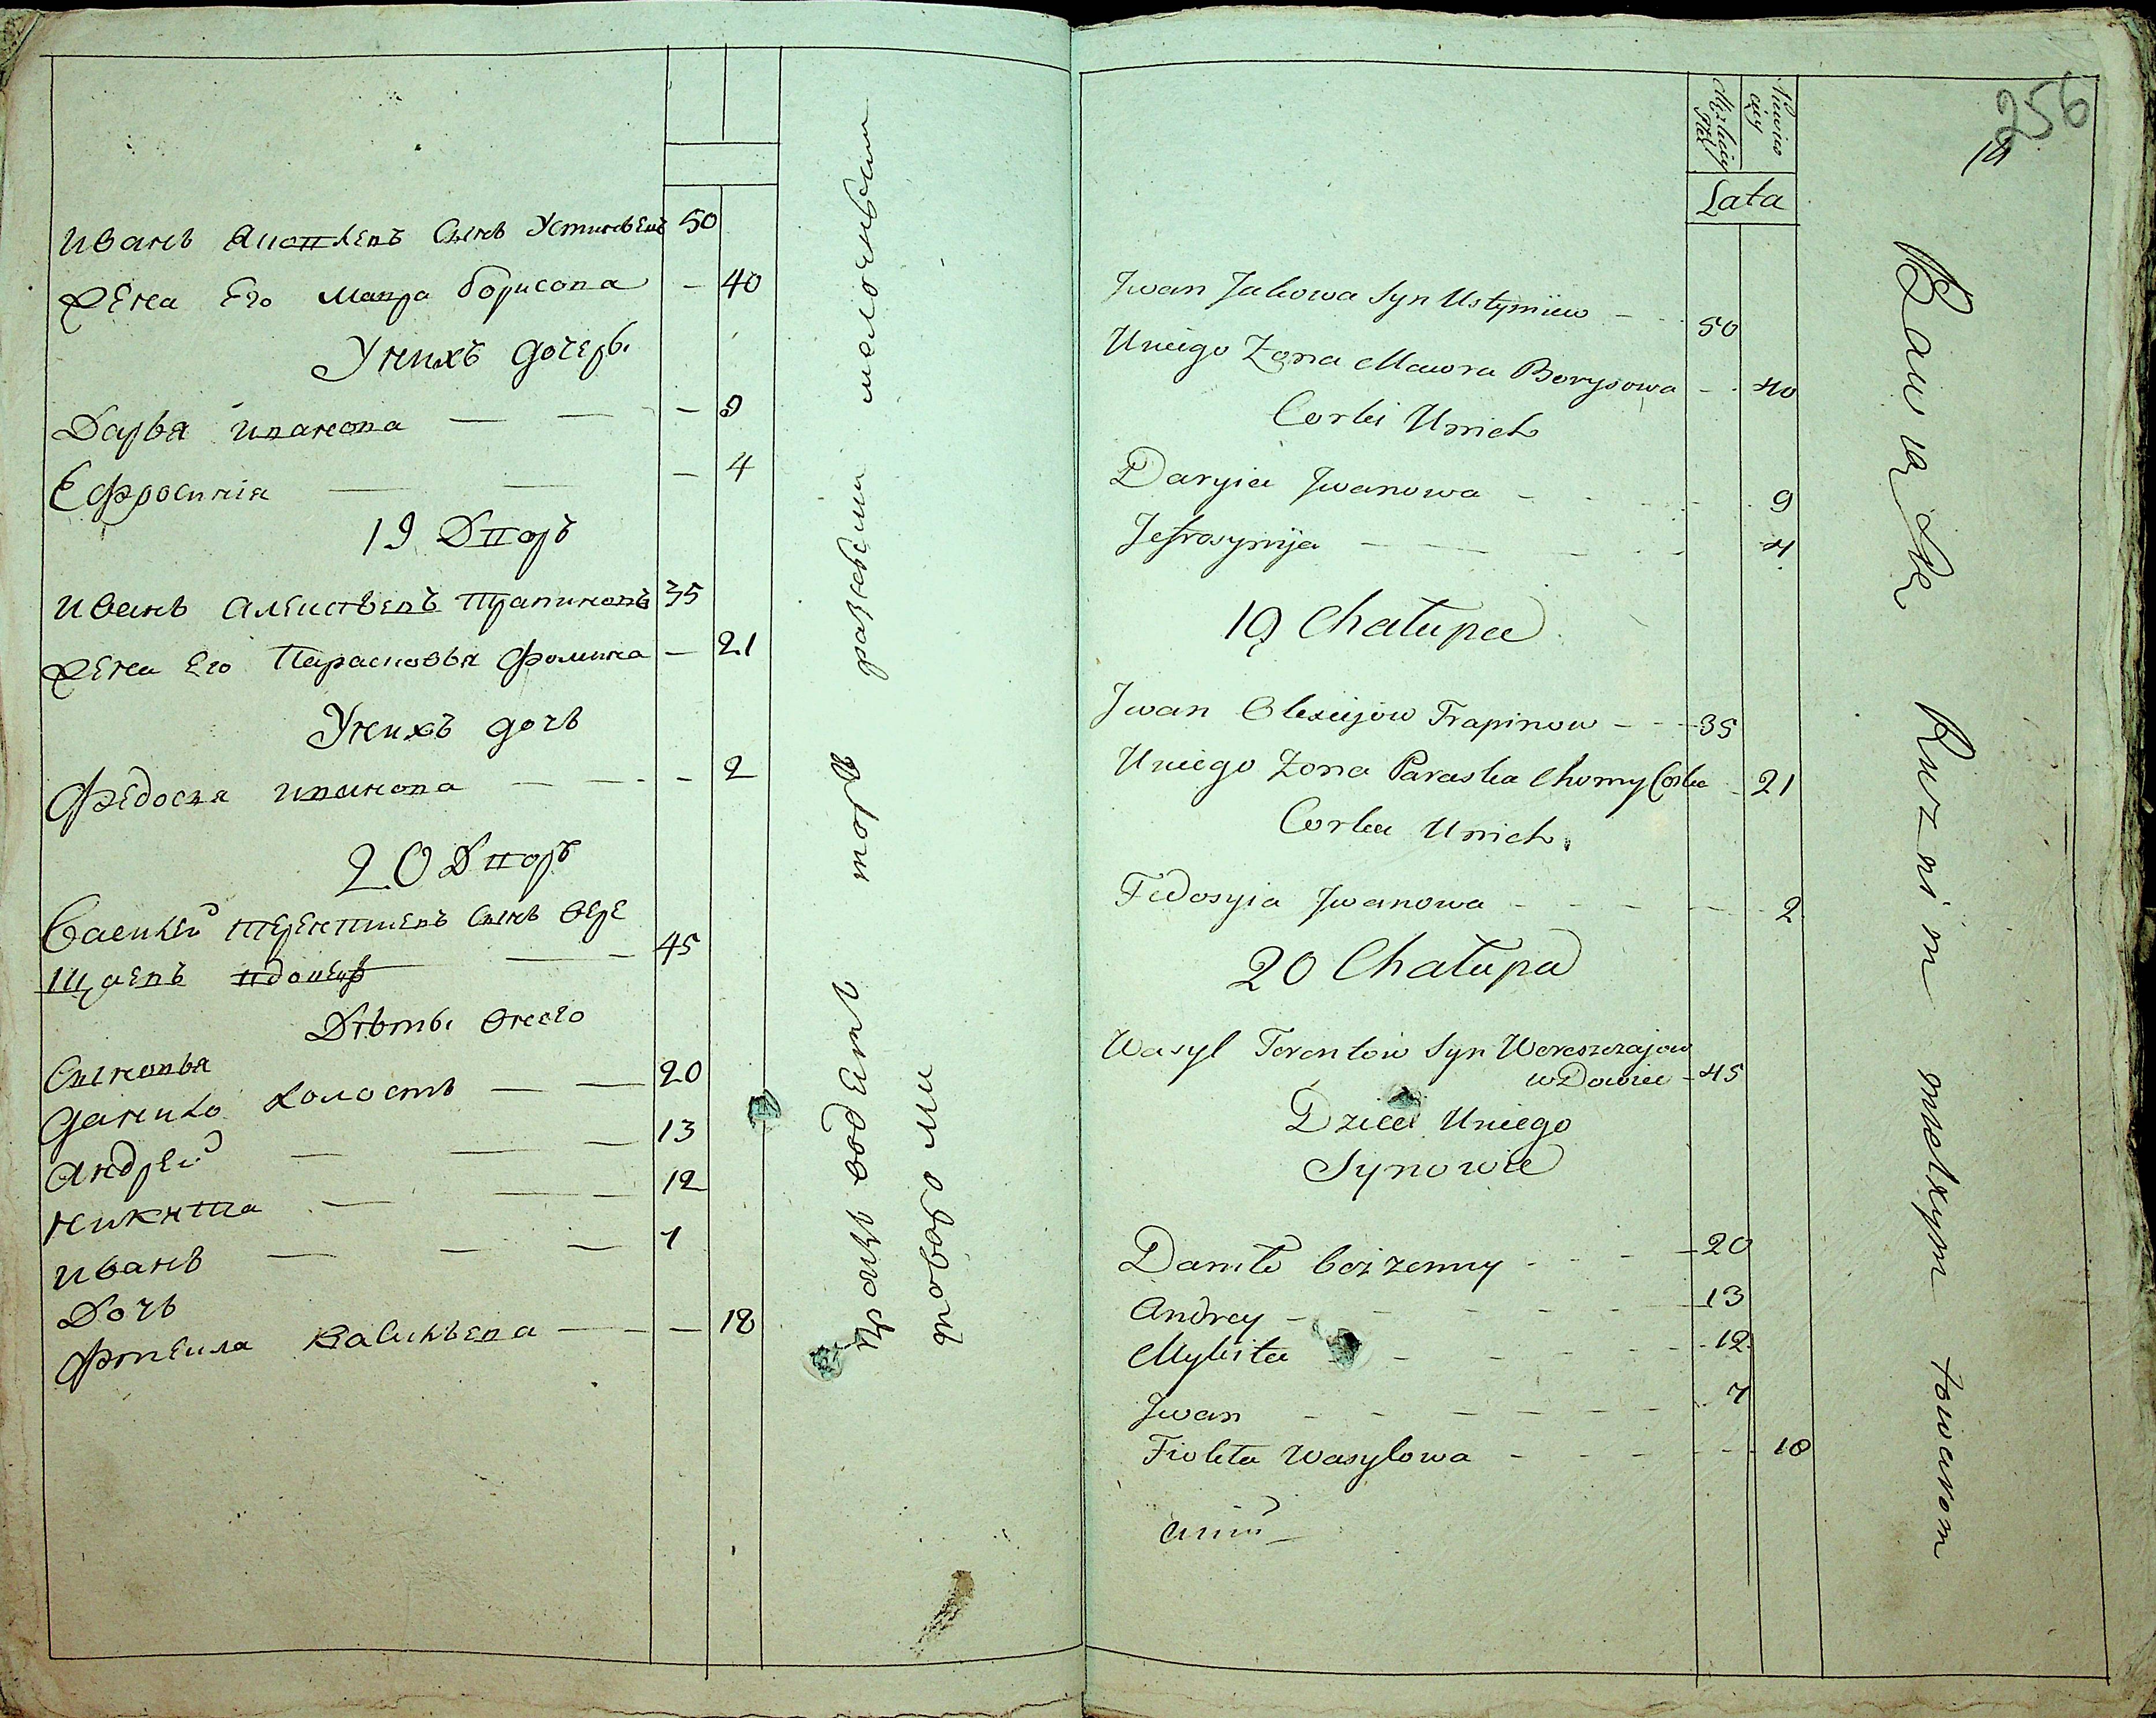 Иванъ Яковлевъ Сынъ Устиновъ 50
Жена Его Мавра Борисова — 40
У нихъ дочеры
Дарья Иванова — — — 9
Ефросинія — — — 4
19 Дворъ
Иванъ Алексѣевъ Трапиновъ 35
Жена Его Парасковья Фомина — 21
У нихъ дочь
Федосья Иванова — — — 2
20 Дворъ
Василей Терентиевъ Сынъ Вере
щаевъ вдовецъ — — 45
Дѣты Онего
Сыновья
Данило холостъ — — 20
Андрей — — — 13
Никита — — — 12
Иванъ — — — 7
Дочь
Василѣева — — — 18
Производитъ торгъ разнымы мелочнымы
товарами
256
Męzkiey
Płci
Lata
Jwan Jakowa Syn Ustymiiew — 50
Uniego Zona Mawra Borysowa — 40
Corki Unich
Daryia Jwanowa — 9
Jefrosynija — 4
19 Chałupa
Jwan Olexiejow Trapinow — 35
Uniego Zona Paraska Chomy Corka — 21
Corka Unich
Fedosyia Jwanowa — 2
20 Chałupa
Wasyl Terentow Syn Wereszczajow
wDowiec — 45
Dzieci Uniego
Synowie
Daniło bezzenny — 20
Andrey — 13
Mykita — 12
Jwan — 7
Fiokta Wasylowa — 18
Bawią Się Rurznim melkym towarom